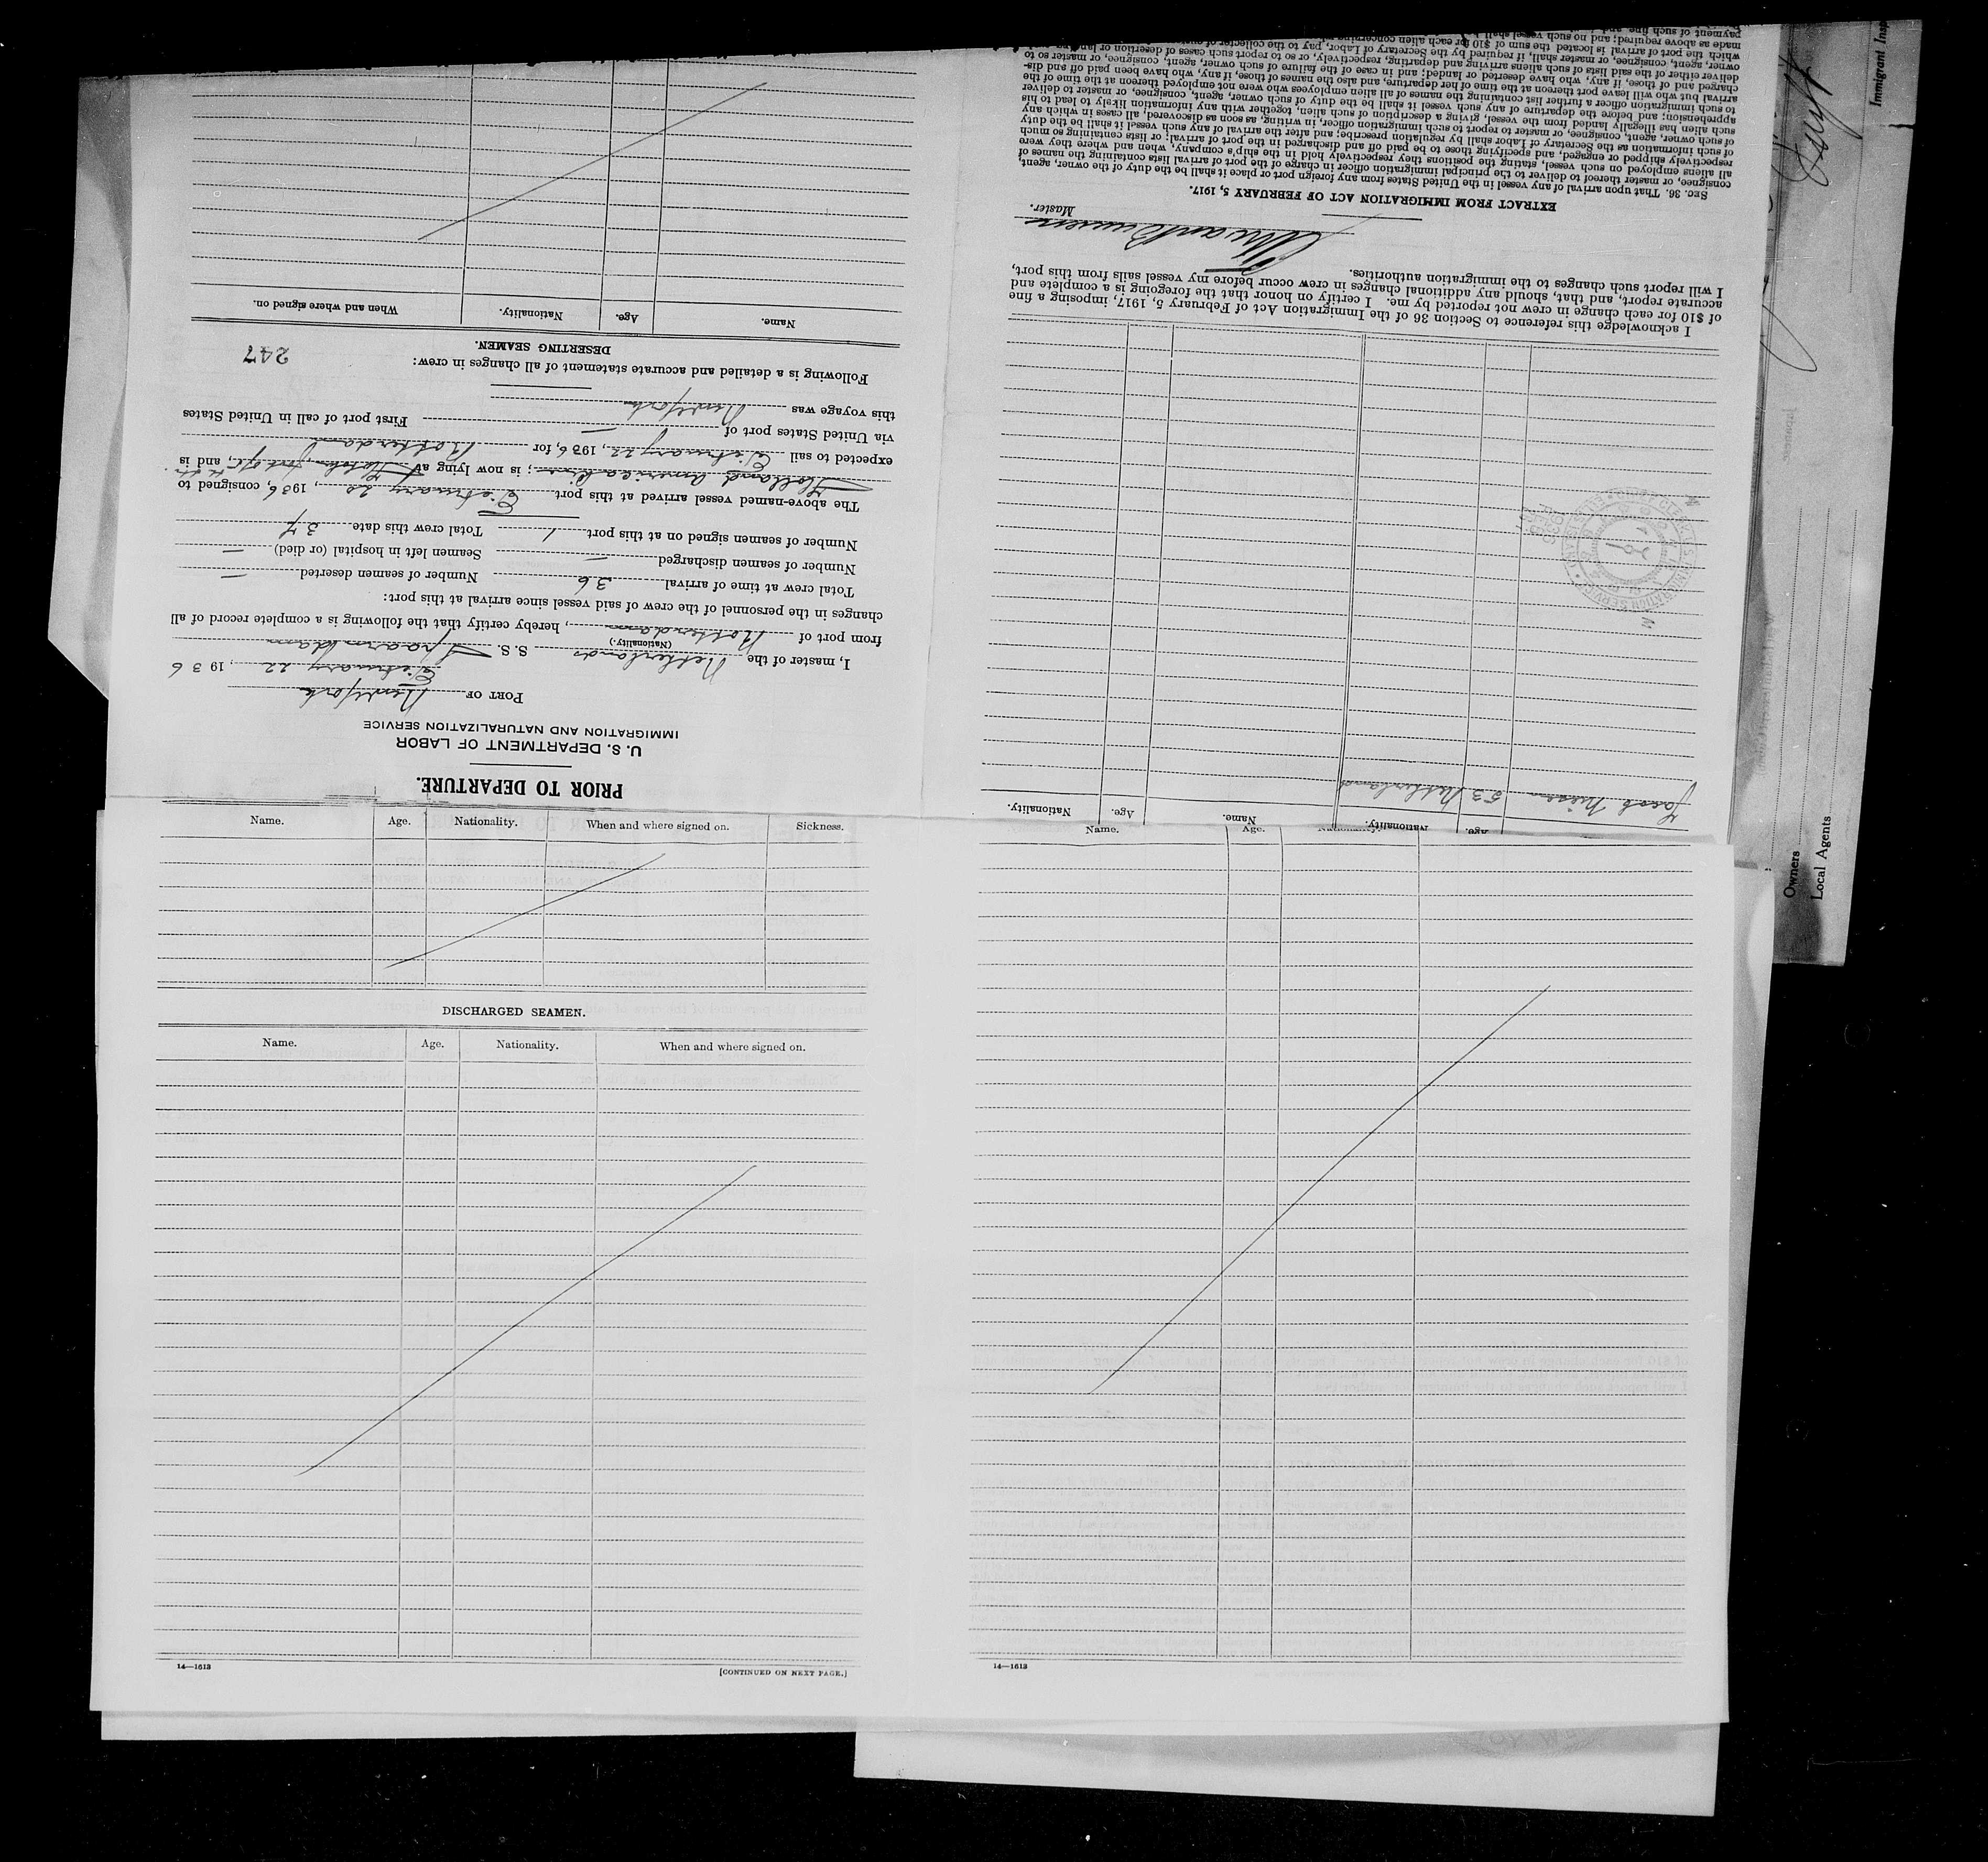 PRIOR TO DEPARTURE.
U. S. DEPARTMENT OF LABOR
IMMIGRATION AND NATURALIZATION SERVICE
PORT OF New York
February 22, 1936
I, master of the Netherlands S. S. Spaarndam
(Nationality.)
from port of Rotterdam, hereby certify that the following is a complete record of all
changes in the personnel of the crew of said vessel since arrival at this port:
Total crew at time of arrival 36 Number of seamen deserted —
Number of seamen discharged — Seamen left in hospital (or died) —
Number of seamen signed on at this port 1 Total crew this date 37
The above-named vessel arrived at this port February 20, 1936, consigned to
Holland America Line; is now lying at Hoboken, and is
expected to sail February 22, 1936, for Rotterdam
via United States port of — First port of call in United States
this voyage was New York
Following is a detailed and accurate statement of all changes in crew:
247
DESERTING SEAMEN.
Name. Age. Nationality. When and where signed on.
Name. Age. Nationality. Name. Age. Nationality.
Jacob 53 Netherland
I acknowledge this reference to Section 36 of the Immigration Act of February 5, 1917, imposing a fine
of $10 for each change in crew not reported by me. I certify on honor that the foregoing is a complete and
accurate report, and that, should any additional changes in crew occur before my vessel sails from this port,
I will report such changes to the immigration authorities.
Master.
EXTRACT FROM IMMIGRATION ACT OF FEBRUARY 5, 1917.
SEC. 36. That upon arrival of any vessel in the United States from any foreign port or place it shall be the duty of the owner, agent,
consignee, or master thereof to deliver to the principal immigration officer in charge of the port of arrival lists containing the names of
all aliens employed on such vessel, stating the positions they respectively hold in the ship's company, when and where they were
respectively shipped or engaged, and specifying those to be paid off and discharged in the port of arrival; or lists containing so much
of such information as the Secretary of Labor shall by regulation prescribe; and after the arrival of any such vessel it shall be the duty
of such owner, agent, consignee, or master to report to such immigration officer, in writing, as soon as discovered, all cases in which
any such alien has illegally landed from the vessel, giving a description of such alien, together with any information likely to lead to his
apprehension; and before the departure of any such vessel it shall be the duty of such owner, agent, consignee, or master to deliver
to such immigration officer a further list containing the names of all alien employees who were not employed thereon at the time of the
arrival but who will leave port thereon at the time of her departure, and also the names of those, if any, who have been paid off and dis-
charged and of those, if any, who have deserted or landed; and in case of the failure of such owner, agent, consignee, or master so to
deliver either of the said lists of such aliens arriving and departing, respectively, or so to report such cases of desertion or landing
owner, agent, consignee, or master shall, if required by the Secretary of Labor, pay to the collector of
which the port of arrival is located the sum of $10 for each alien concerning
made as above required; and no such vessel shall
payment of such fine, and
Name. Age. Nationality. When and where signed on. Sickness.
DISCHARGED SEAMEN.
Name. Age. Nationality. When and where signed on.
14—1613
[CONTINUED ON NEXT PAGE.]
Name. Age.
14—1613
Owners
Local Agents
Immigrant Insp